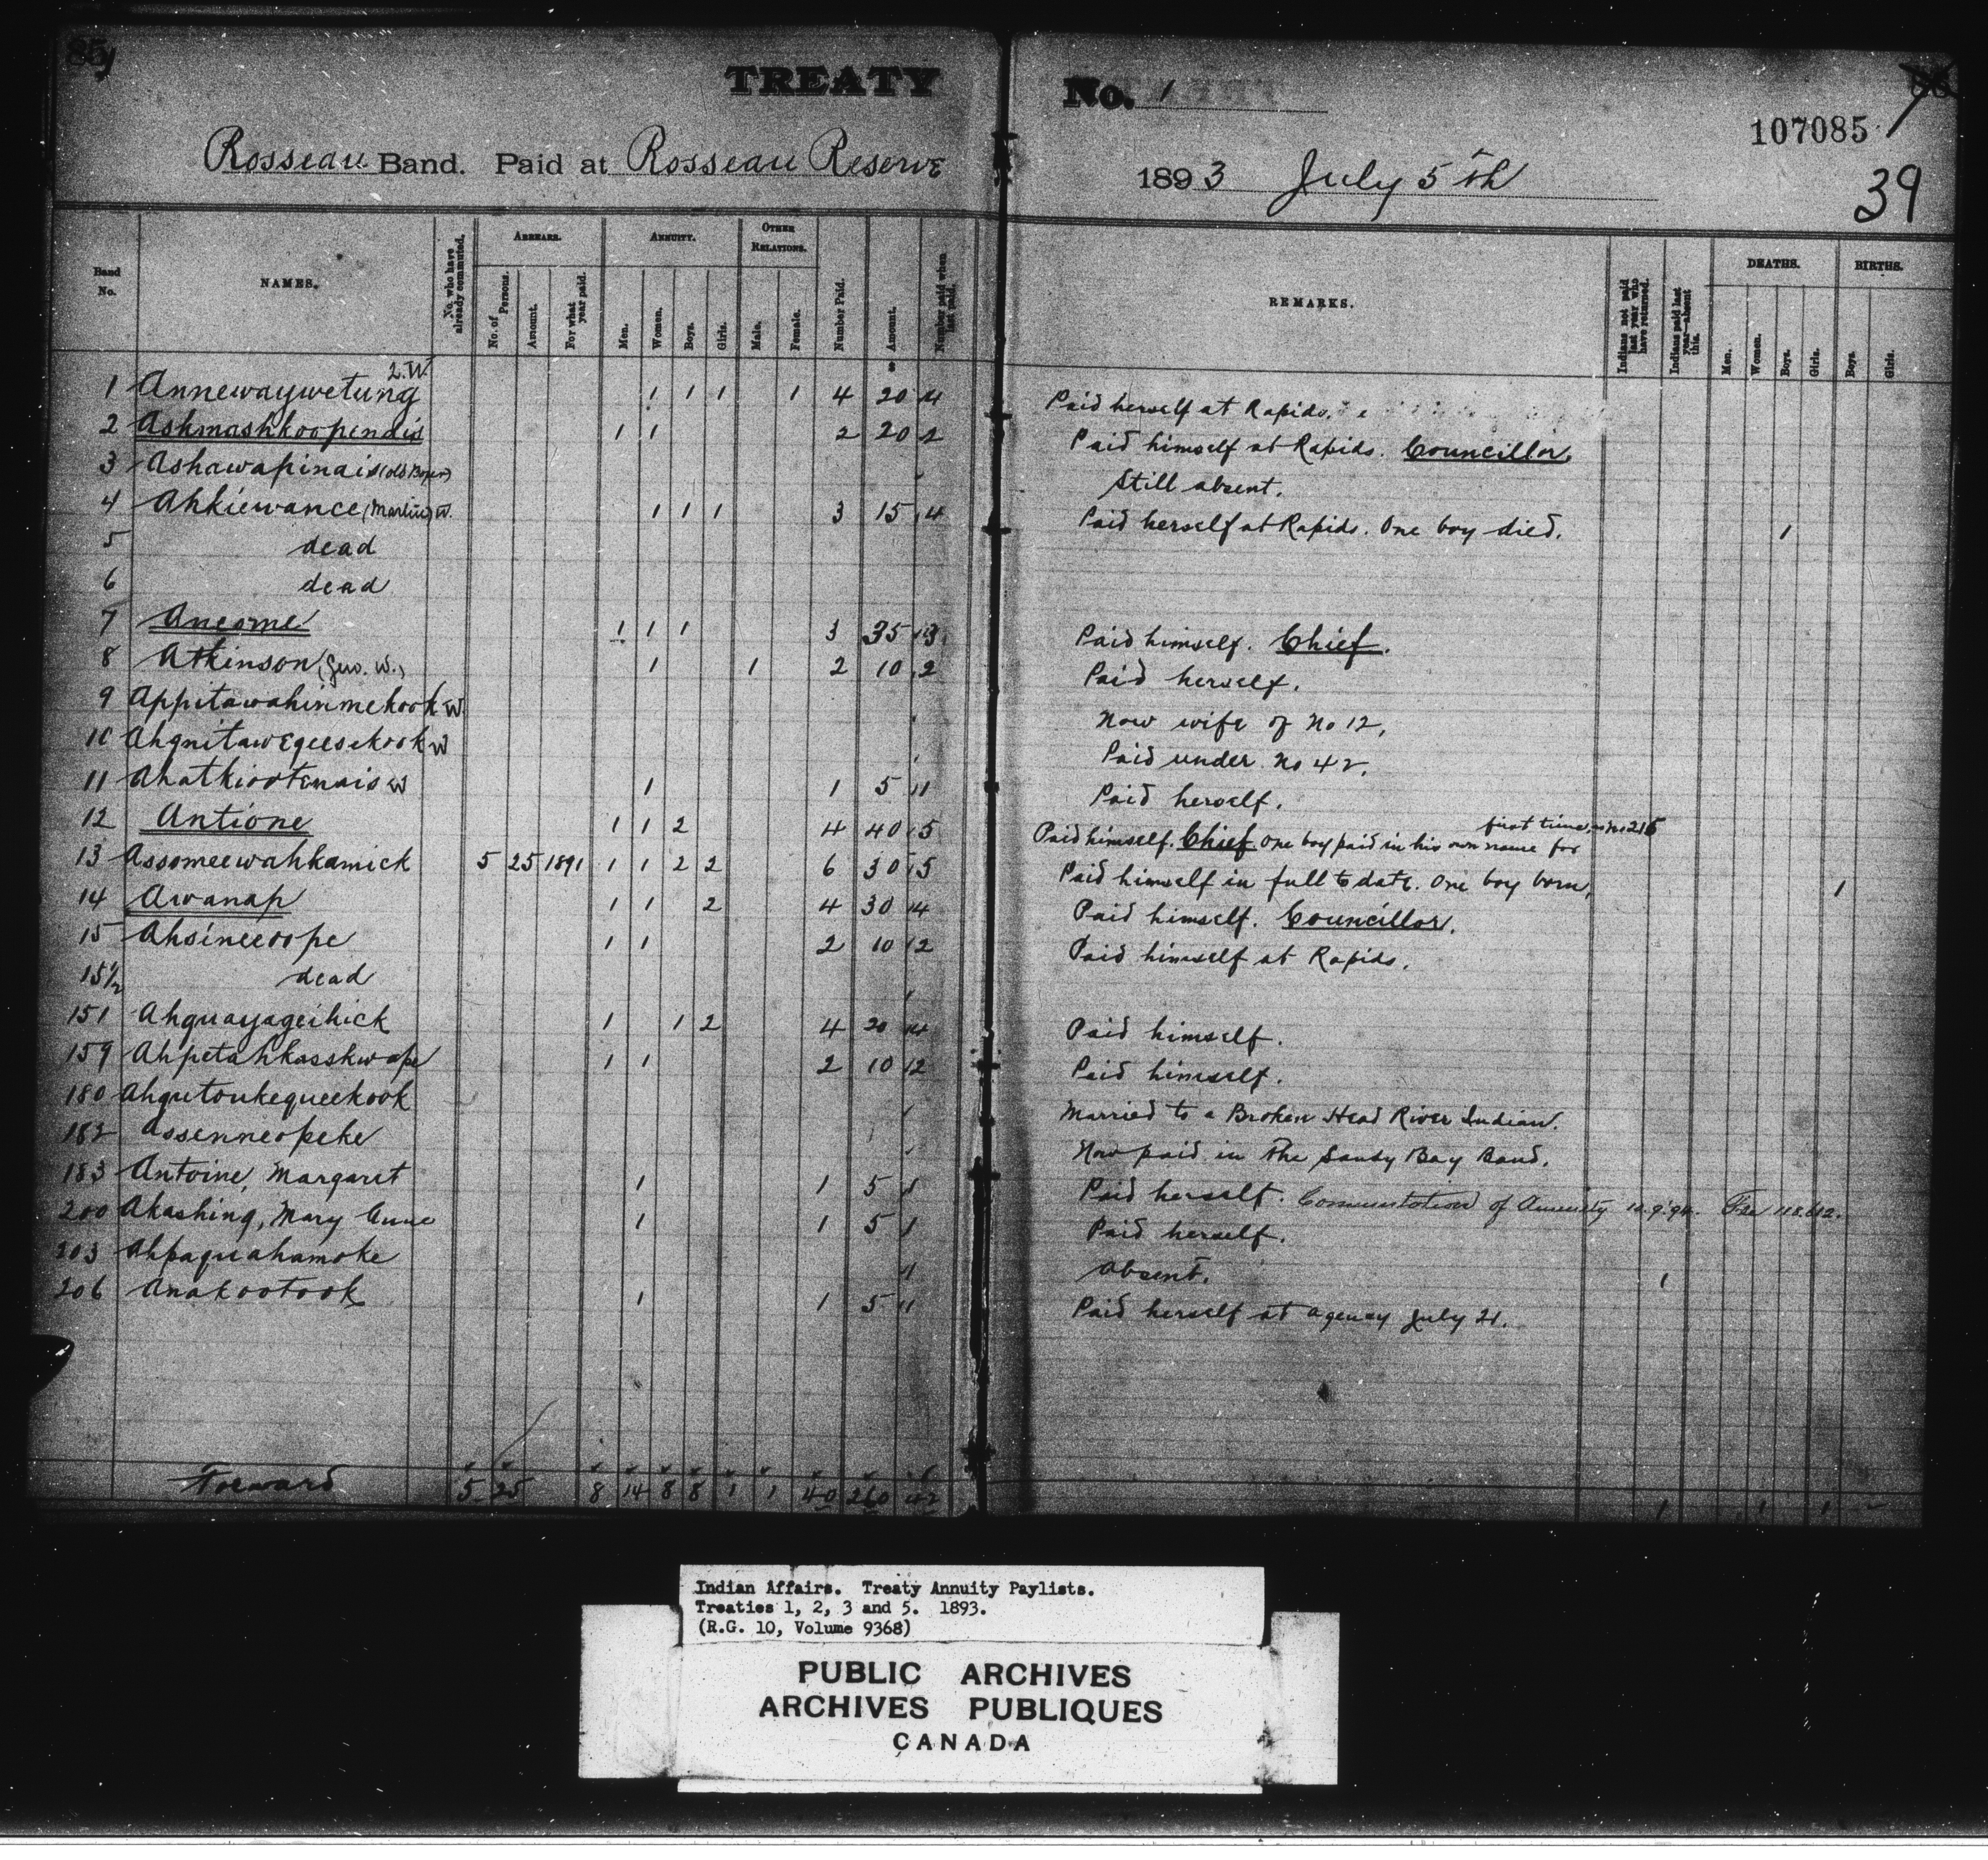 TREATY No. 1
107085
Rosseau Band. Paid at Rosseau Reserve 1893 July 5th
39
Band No. NAMES. No. who have already commuted. ARREARS. No. of Persons. Amount. For what year paid. ANNUITY. Men. Women. Boys. Girls. OTHER RELATIONS. Male. Female. Number Paid. Amount. Number paid when last paid. REMARKS. Indians not paid last year who have returned. Indians paid last year—absent this. DEATHS. Men. Women. Boys. Girls. BIRTHS. Boys. Girls.
1 Annewaywetung 2.W. 1 1 1 1 4 20 4 Paid herself at Rapids.
2 Ashmashkoopenais 1 1 2 20 2 Paid himself at Rapids. Councillor.
3 Ashawapinais Still absent.
4 Ahkiewance (Martin) W. 1 1 1 3 15 4 Paid herself at Rapids. One boy died. 1
5 dead
6 dead
7 Aneome 1 1 1 3 35 3 Paid himself. Chief.
8 Atkinson (Geo. W.) 1 1 2 10 2 Paid herself.
9 Appitawahinmekook W. Now wife of No 12,
10 Ahgnitawegeesekook W Paid under No 42.
11 Ahatkiootenais W 1 1 5 1 Paid herself.
12 Antione 1 1 2 4 40 5 Paid himself. Chief. One boy paid in his own name for first time, as No 215
13 Assomeewahkamick 5 25 1891 1 1 2 2 6 30 5 Paid himself in full to date. One boy born, 1
14 Awanap 1 1 2 4 30 4 Paid himself. Councillor.
15 Ahsineeoope 1 1 2 10 2 Paid himself at Rapids.
15½ dead
151 Ahguayageihick 1 1 2 4 20 4 Paid himself.
159 Ahpetahkasskwape 1 1 2 10 2 Paid himself.
180 Ahgutoukequeekook Married to a Broken Head River Indian.
182 Assenneopeke Now paid in the Sandy Bay Band.
183 Antoine, Margaret 1 1 5 1 Paid herself. Commutation of Annuity 10.9.94.
200 Akashing, Mary Anne 1 1 5 1 Paid herself.
203 Ahpaquahamoke 1 Absent. 1
206 Anakootook 1 1 5 1 Paid herself at Agency July 21.
Forward 5 25 8 14 8 8 1 1 40 260 42 1 1 1
Indian Affairs. Treaty Annuity Paylists.
Treaties 1, 2, 3 and 5. 1893.
(R.G. 10, Volume 9368)
PUBLIC ARCHIVES
ARCHIVES PUBLIQUES
CANADA